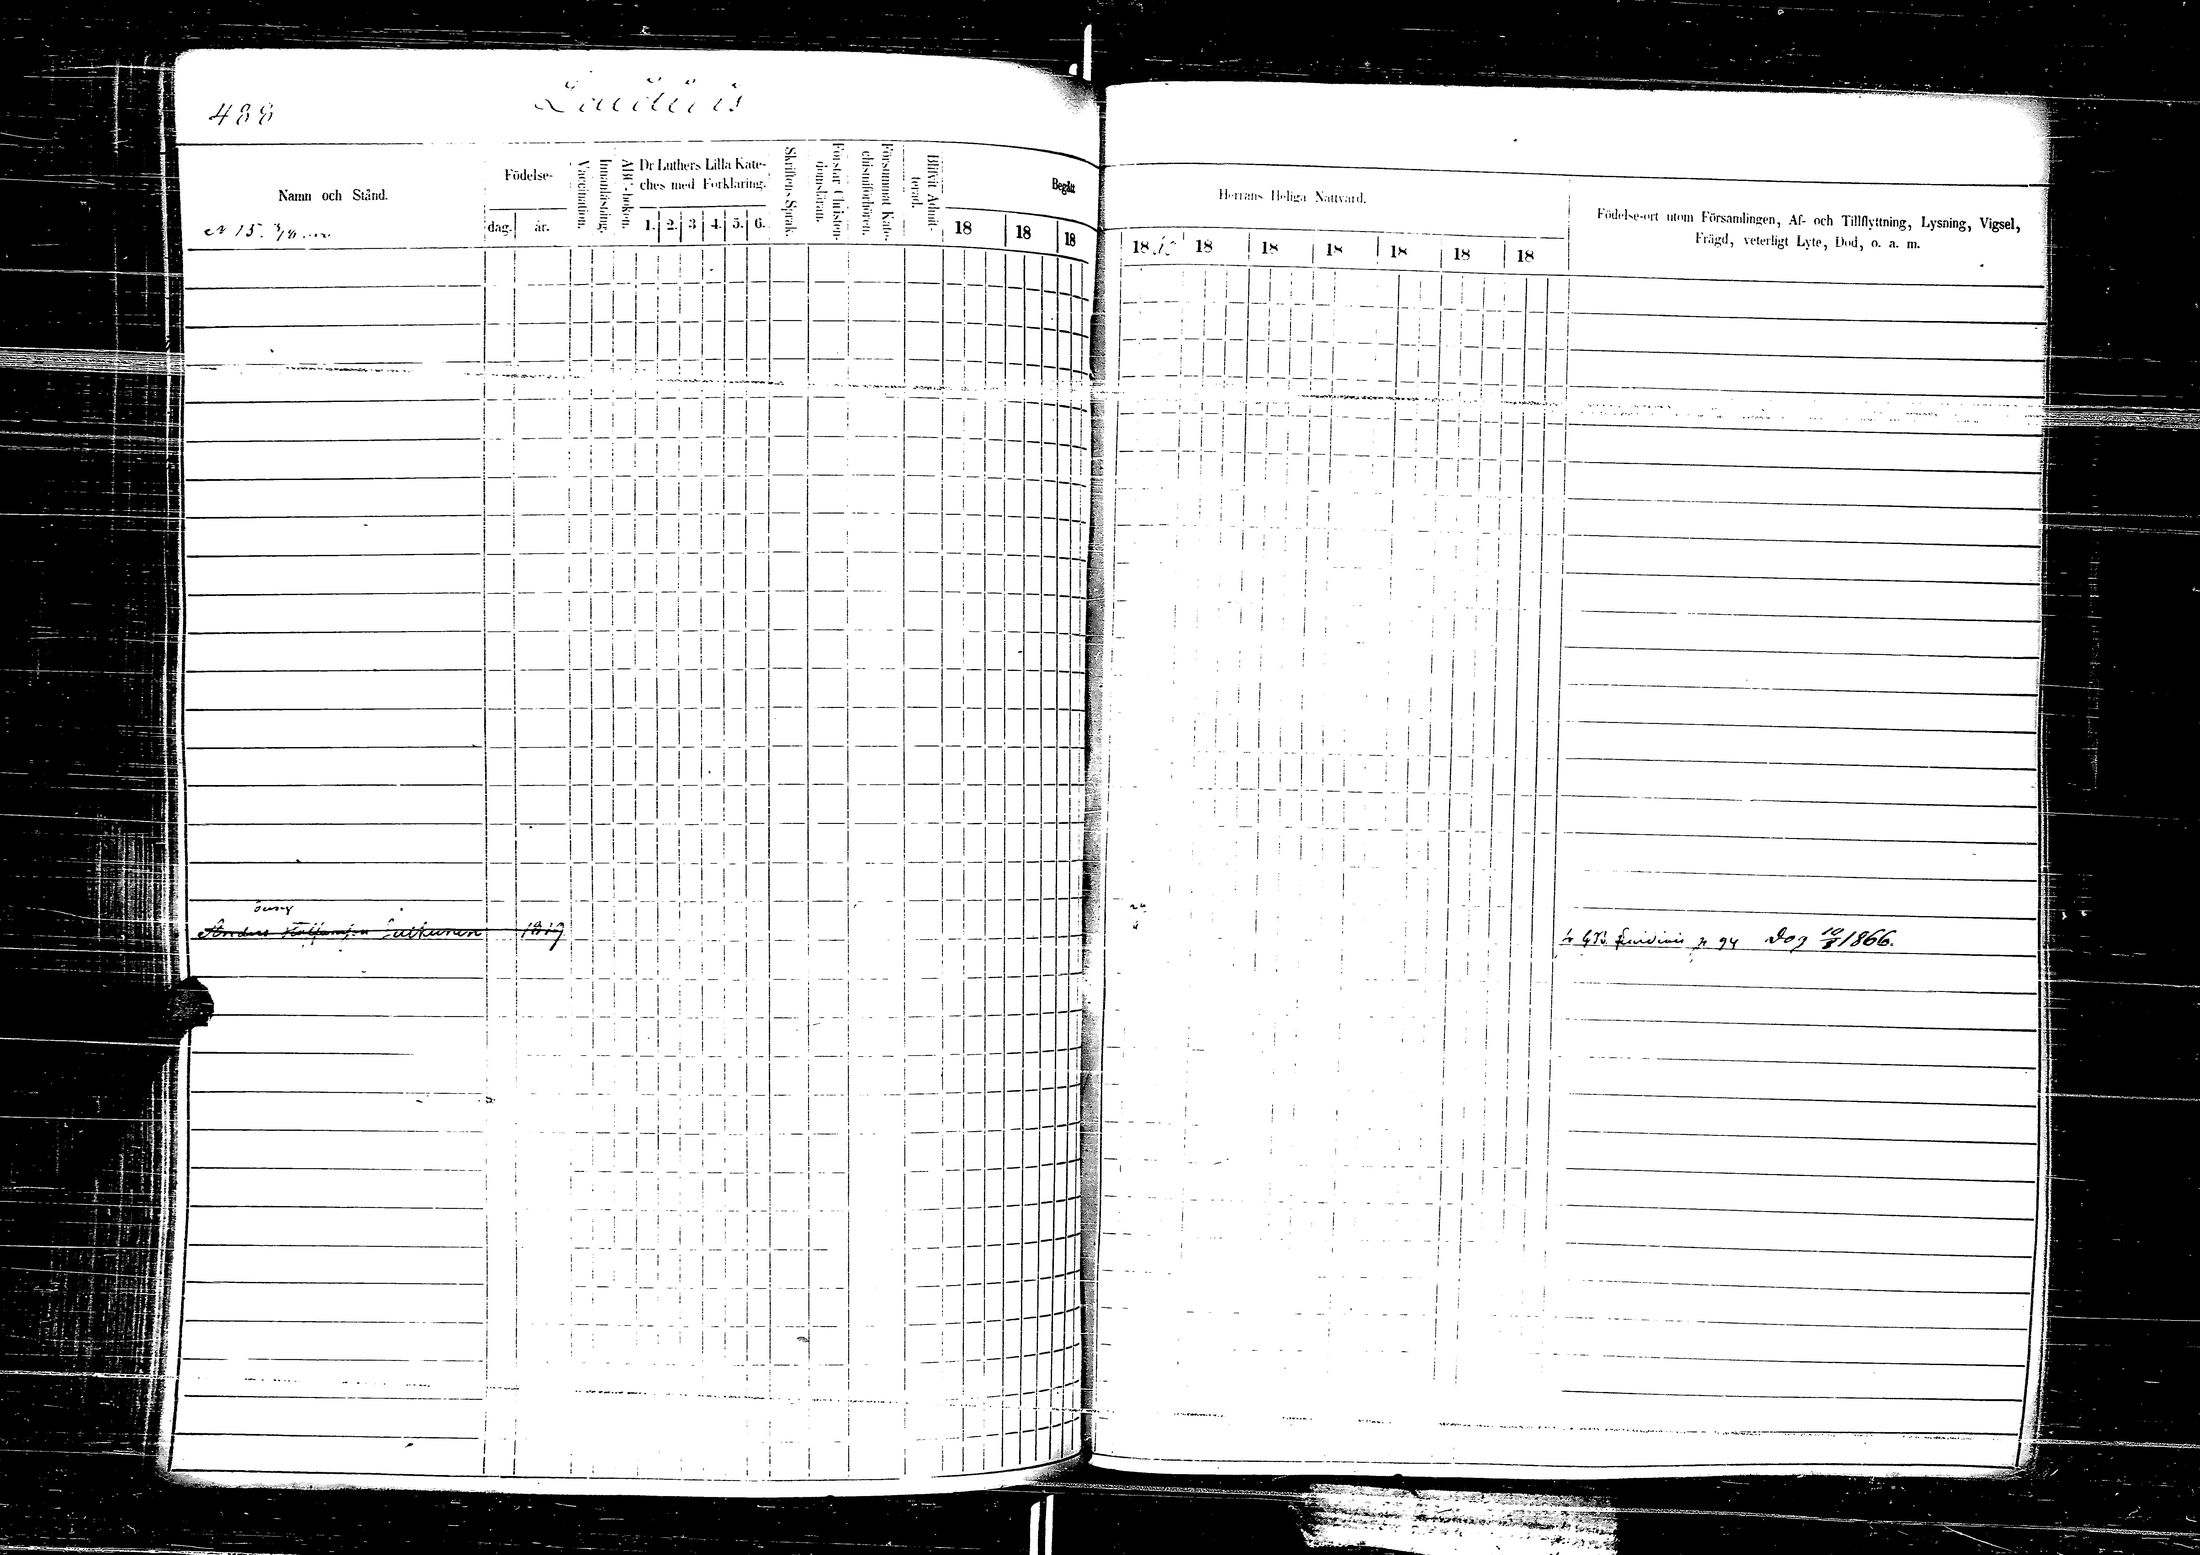 488
Namn och Stånd.
Födelse-
dag. år.
Vaccination.
Innanläsning.
ABC-boken.
Dr Luthers Lilla Kate-
ches med Förklaring.
1. 2. 3 4. 5. 6.
Skriftens Språk.
Förstår Christen-
domsläran.
Försummat Kate-
chismiförhören.
Blifvit Admit-
terad.
Begått
18 18 18
N 15.
Anders 1819
Herrans Heliga Nattvard.
18 18 18 18 18 18 18
Födelse-ort utom Församlingen, Af- och Tillflyttning, Lysning, Vigsel,
Frägd, veterligt Lyte, Död, o. a. m.
p 94 Dog 10/8 1866.